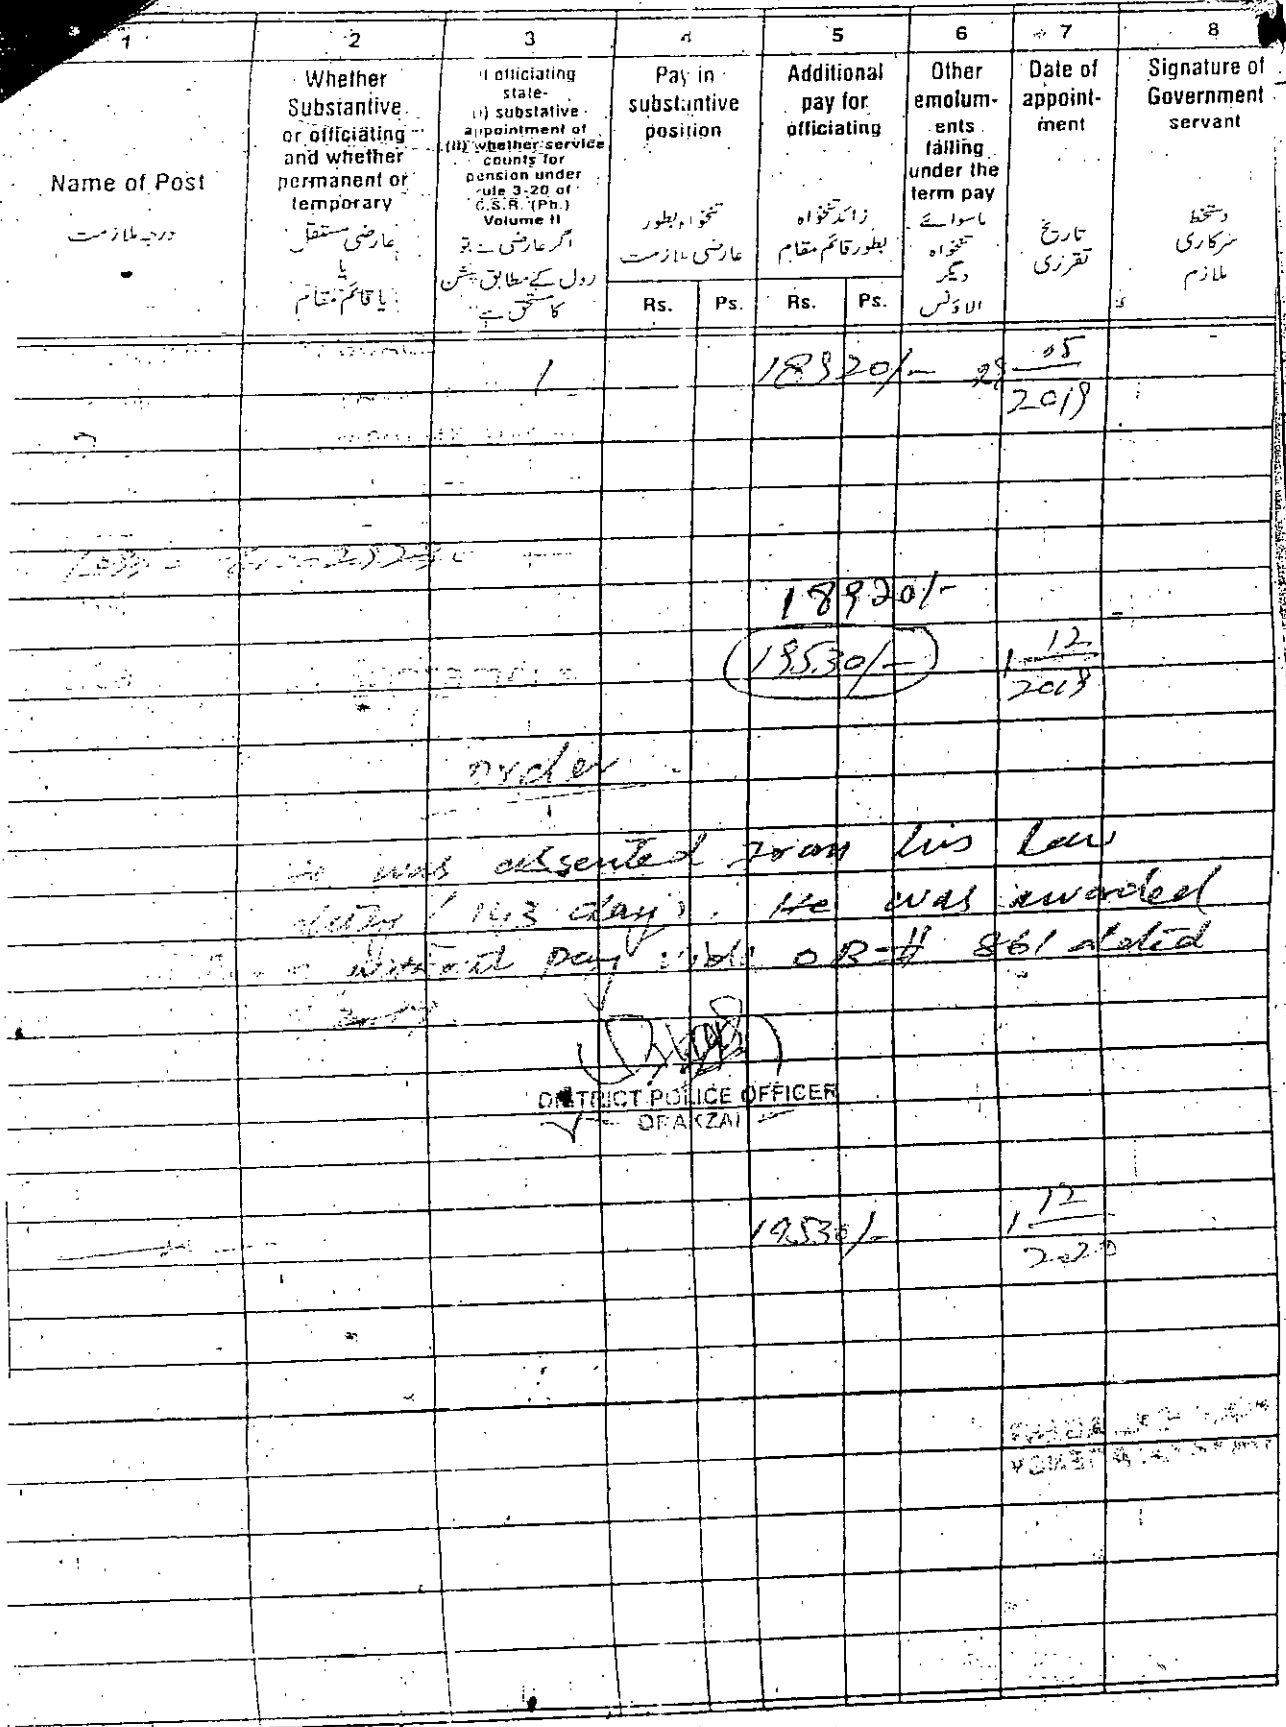 1 2 3 4 5 6 7 8
Name of Post
درجہ ملازمت
Whether
Substantive
or officiating
and whether
permanent or
temporary
عارضی مستقل
یا
یا قائم مقام
If officiating
state-
(i) substative
appointment of
(II) whether service
counts for
pension under
rule 3-20 of
C.S.R. (Ph.)
Volume II
اگر عارضی ہے تو
رول کے مطابق پنشن
کا مستحق ہے
Pay in
substantive
position
تنخواہ بطور
عارضی ملازمت
Rs. Ps.
Additional
pay for
officiating
زائد تنخواہ
بطور قائم مقام
Rs. Ps.
Other
emolum-
ents
falling
under the
term pay
ماسوائے
تنخواہ
دیگر
الاؤنس
Date of
appoint-
ment
تاریخ
تقرری
Signature of
Government
servant
دستخط
سرکاری
ملازم
18920/- 29 05
2019
18920/-
19530/- 1 12
2019
order
was absented from his law
duty 143 days. He was awarded
without pay vide OB # 861 dated
DISTRICT POLICE OFFICER
ORAKZAI
19530/- 1 12
2020